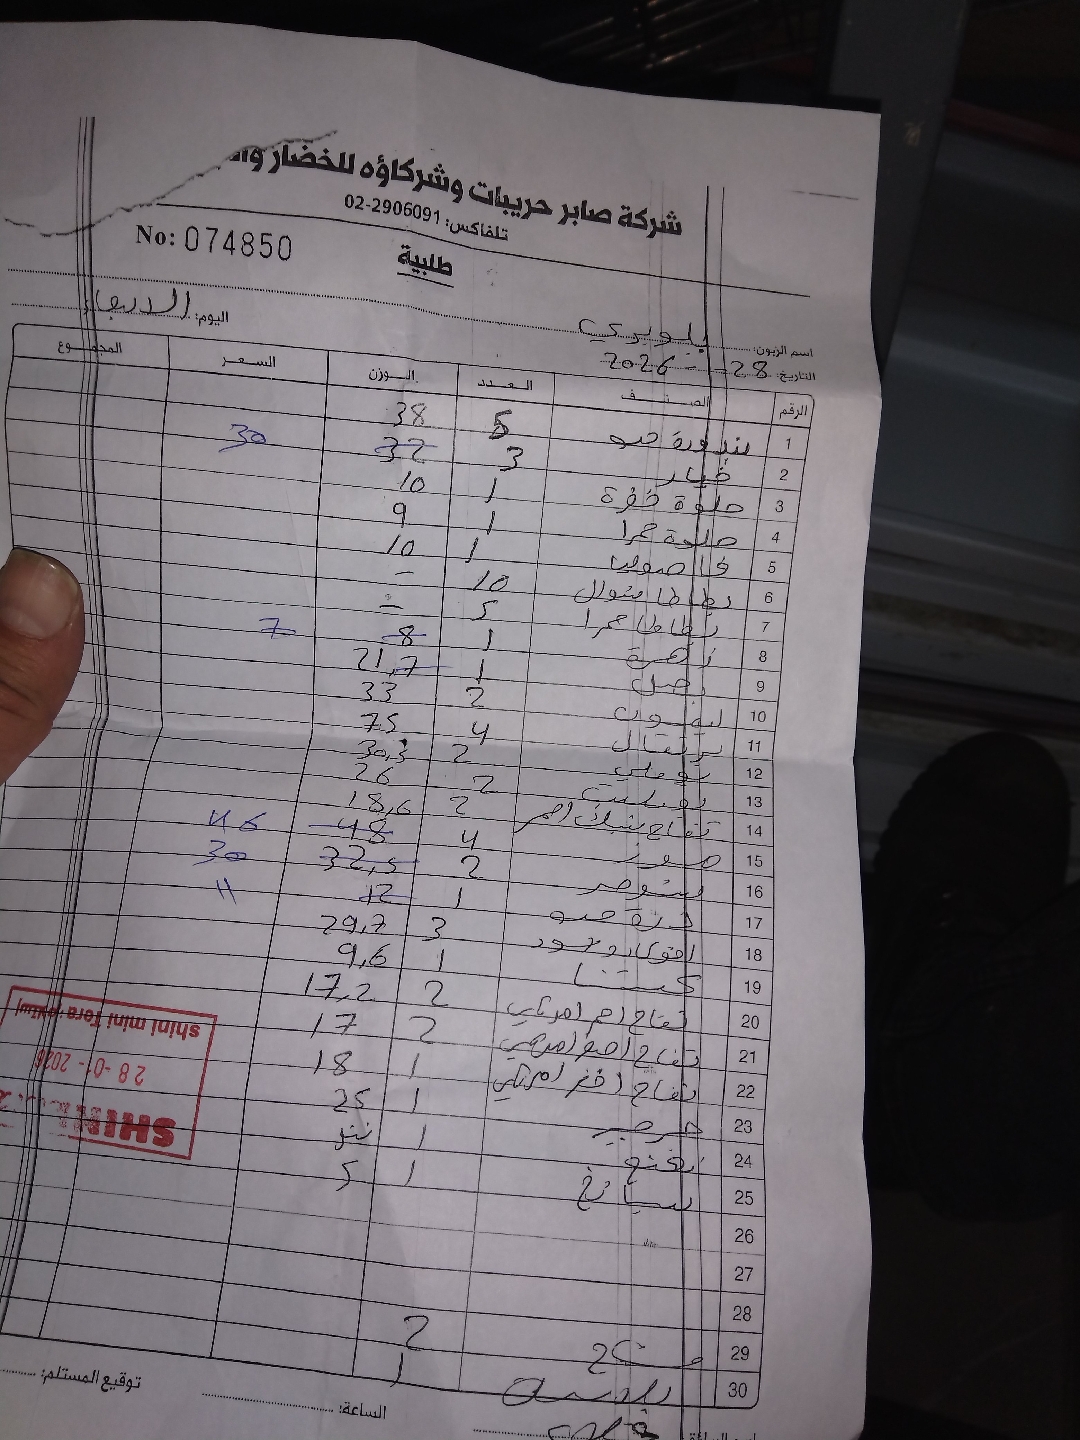 شركة صابر حريبات وشركاؤه للخضار
تلفاكس: 02-2906091
No: 074850
طلبية
اليوم: الاربعاء
اسم الزبون:
التاريخ: 28 - 1 - 2026
الرقم الصنف العدد الوزن السعر المجموع
1 بندورة حبه 5 38
2 خيار 3 32 30
3 حلوة خضرة 1 10
4 حلوة حمرا 1 9
5 فاصوليا 1 10
6 بطاطا شوال 10 -
7 بطاطا حمرا 5 -
8 زهرة 1 8 7
9 بصل 1 21,7
10 ليمون 2 33
11 برتقال 4 75
12 بوملي 2 30,3
13 2 26
14 تفاح بينك احمر 2 18,6
15 موز 4 48 46
16 2 32,5 30
17 ذرة حبه 1 12 11
18 افوكادو 3 29,7
19 كستنا 1 9,6
20 تفاح احمر امريكي 2 17,2
21 تفاح اصفر امريكي 2 17
22 تفاح اخضر امريكي 1 18
23 جرجير 1 25
24 نعنع 1
25 سبانخ 1 5
26
27
28
29 2
30 1
توقيع المستلم:
الساعة:
shini mini Tera
28 -01- 2026
SHINI